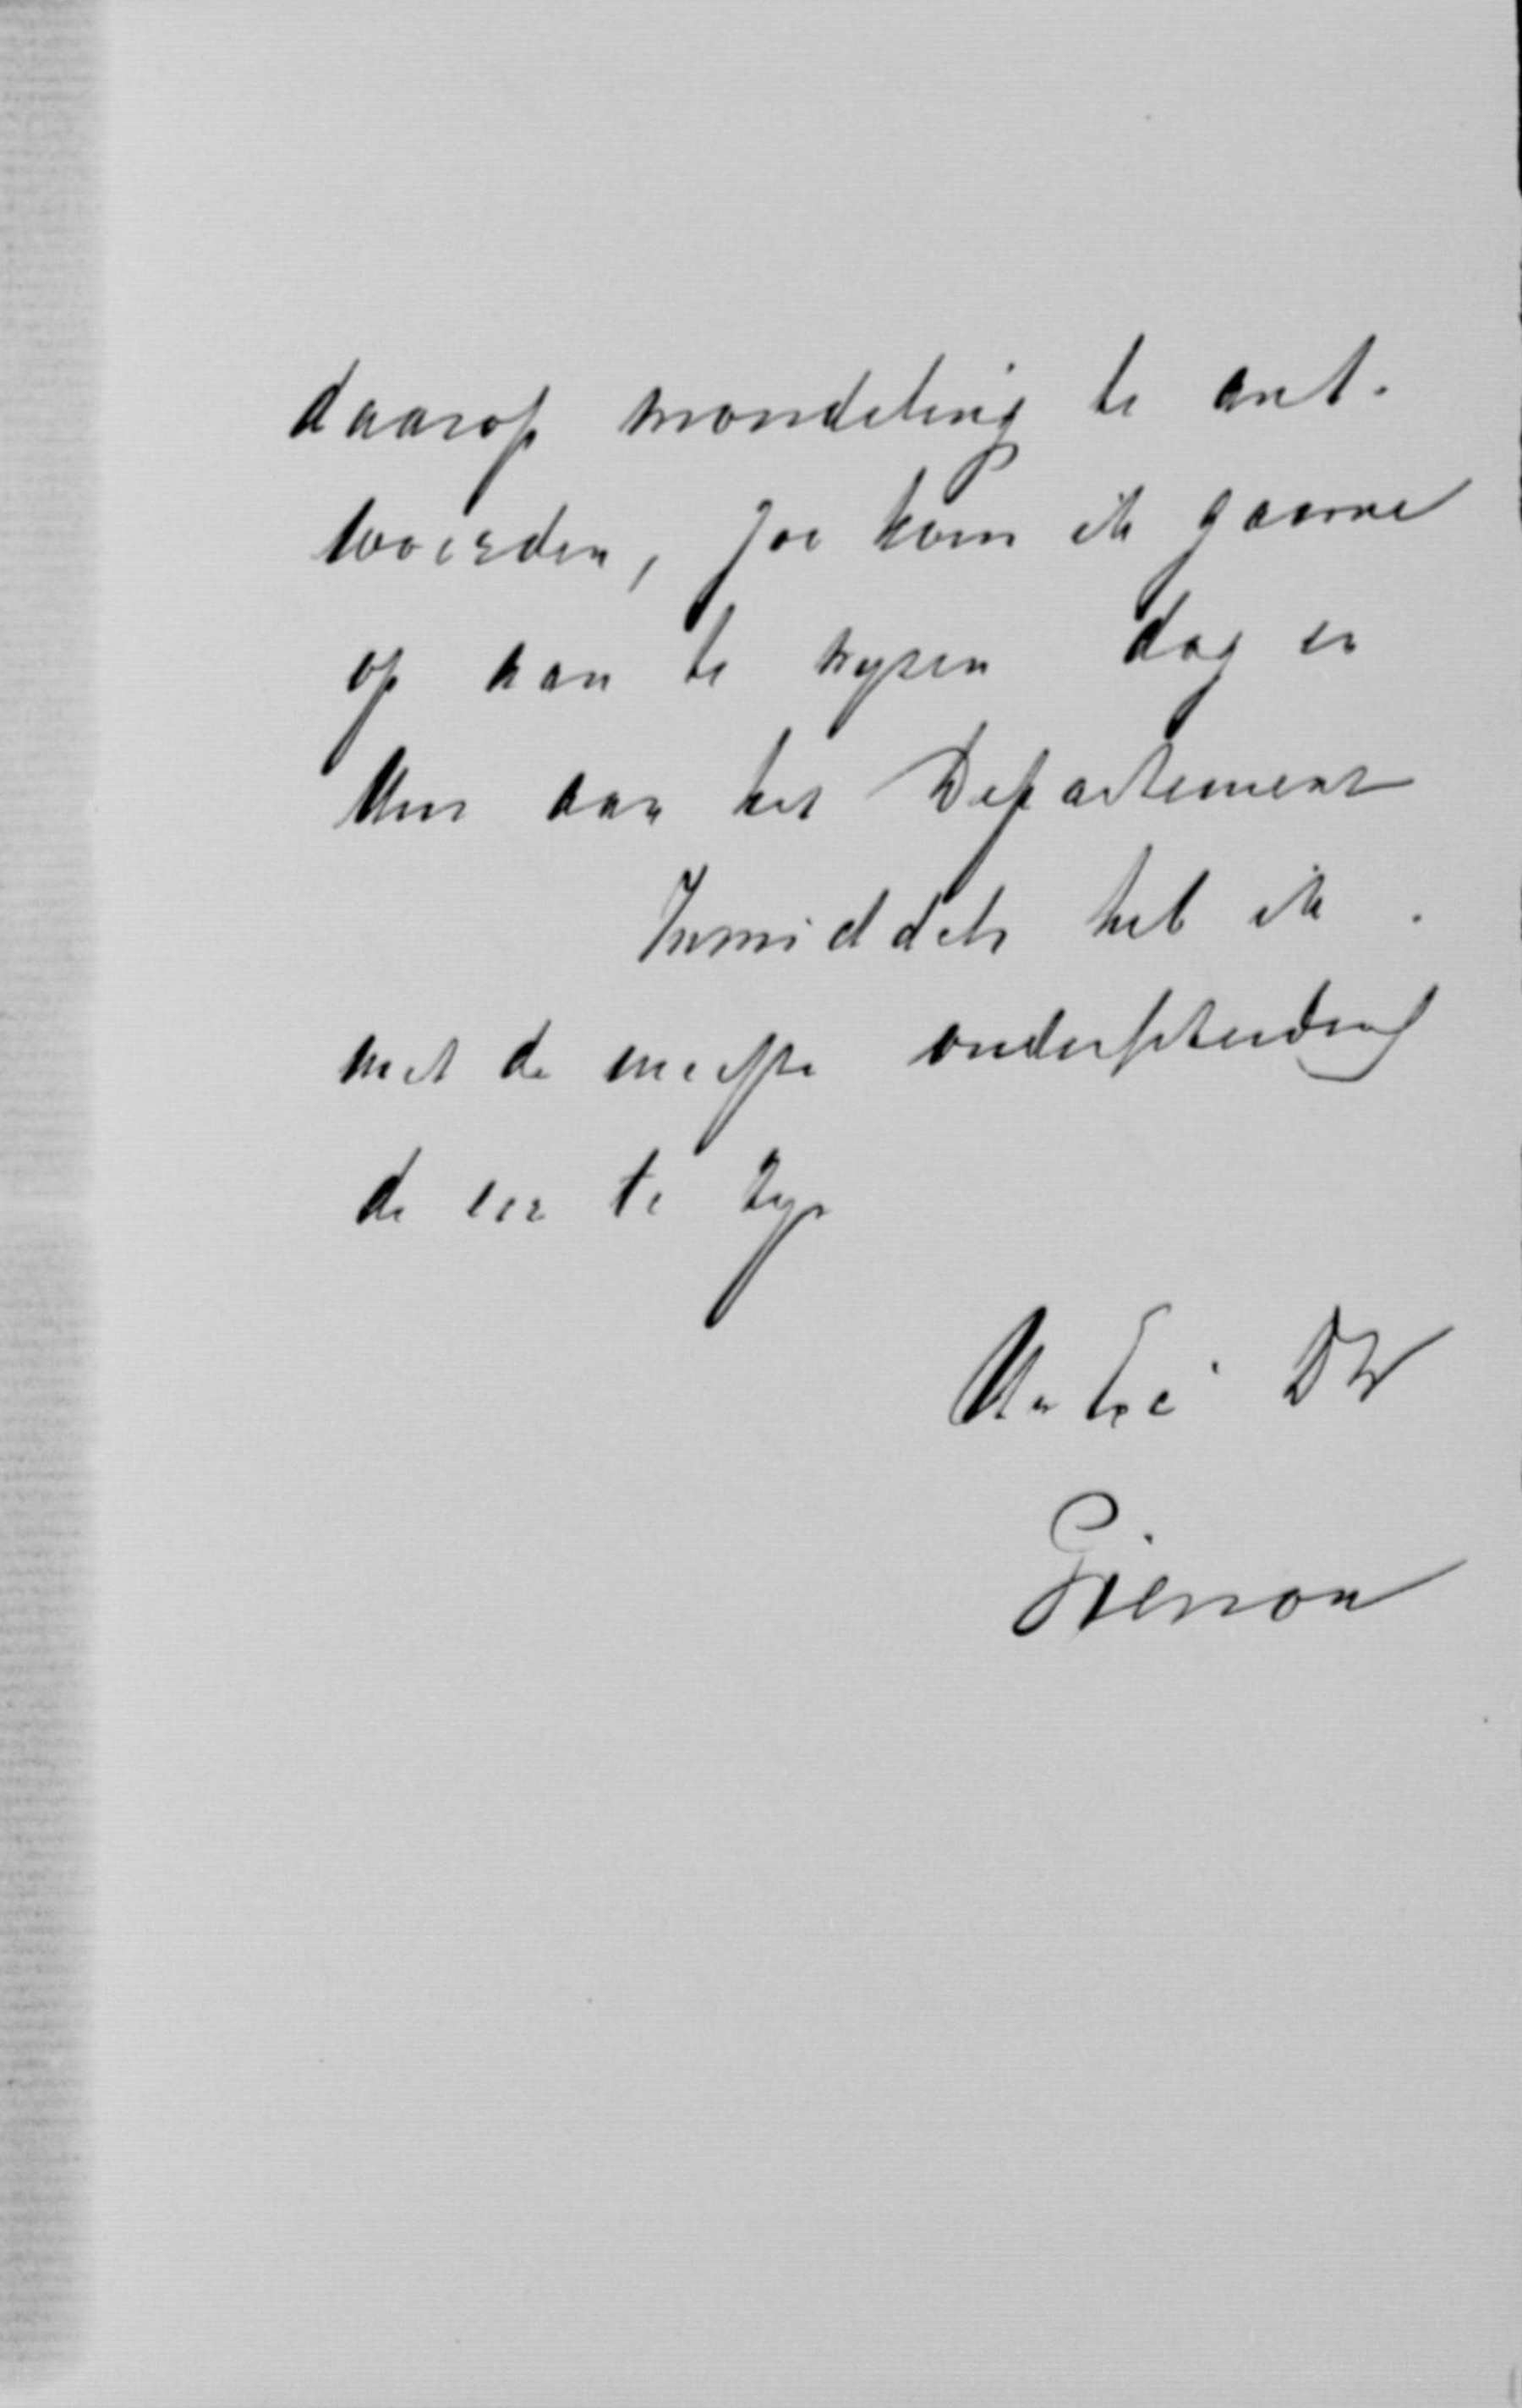 daarop mondeling te ant-
woorden, zoo kom ik gaarne
op aan te wyzen dag en
Uur aan het Departement
Inmiddels heb ik
met de meeste onderscheiding
de eer te zyn
Uw Exc: DW
Pierson